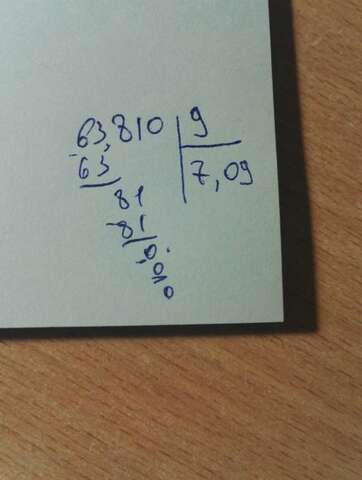 63,810 9
-63 7,09
81
-81
0